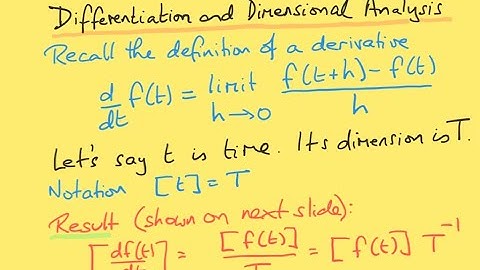 Differentiation and Dimensional Analysis
Recall the definition of a derivative
d/dt f(t) = limit h→0 (f(t+h)-f(t))/h
Let's say t is time. Its dimension is T.
Notation [t]=T
Result (shown on next slide):
[df(t)/dt] = [f(t)]/T = [f(t)] T⁻¹